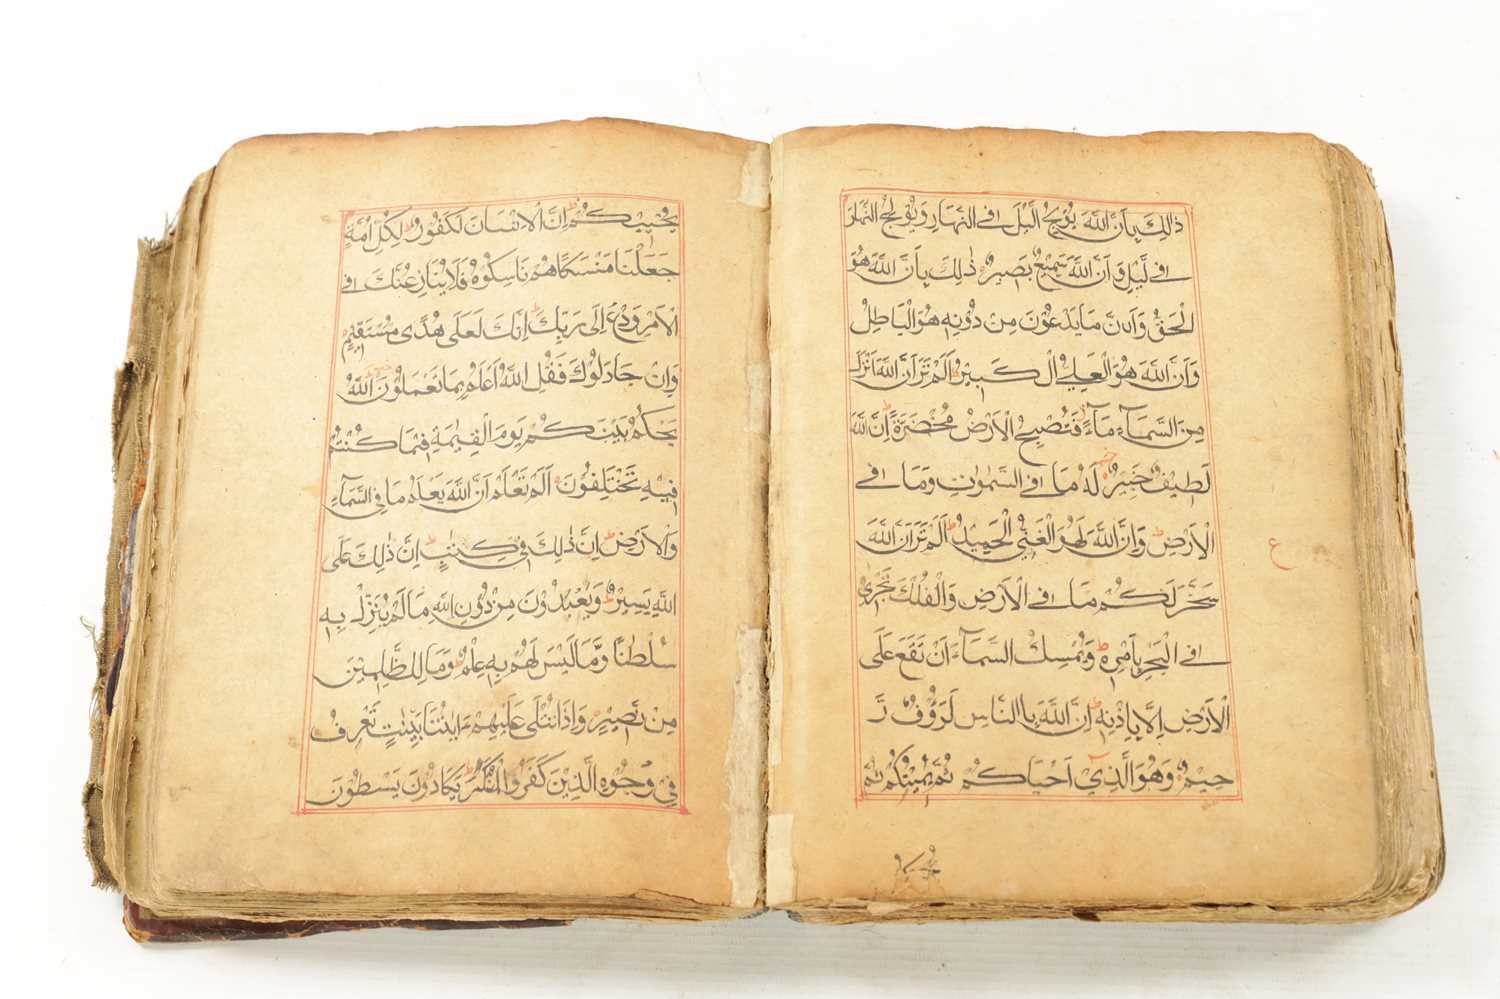 ذٰلِكَ بِاَنَّ اللّٰهَ يُوْلِجُ الَّيْلَ فِى النَّهَارِ وَيُوْلِجُ النَّهَارَ
فِى لَّيْلِ وَاَنَّ اللّٰهَ سَمِيْعٌ بَصِيْرٌ ذٰلِكَ بِاَنَّ اللّٰهَ هُوَ
الْحَقُّ وَاَنَّ مَا يَدْعُوْنَ مِنْ دُوْنِهٖ هُوَ الْبَاطِلُ
وَاَنَّ اللّٰهَ هُوَ الْعَلِىُّ الْكَبِيْرُ ط اَلَمْ تَرَ اَنَّ اللّٰهَ اَنْزَلَ
مِنَ السَّمَآءِ مَآءً فَتُصْبِحُ الْاَرْضُ مُخْضَرَّةً ط اِنَّ اللّٰهَ
لَطِيْفٌ خَبِيْرٌ لَهٗ مَا فِى السَّمٰوٰتِ وَمَا فِى
الْاَرْضِ ط وَاِنَّ اللّٰهَ لَهُوَ الْغَنِىُّ الْحَمِيْدُ ط اَلَمْ تَرَ اَنَّ اللّٰهَ
سَخَّرَ لَكُمْ مَا فِى الْاَرْضِ وَالْفُلْكَ تَجْرِىْ
فِى الْبَحْرِ بِاَمْرِهٖ ط وَيُمْسِكُ السَّمَآءَ اَنْ تَقَعَ عَلَى
الْاَرْضِ اِلَّا بِاِذْنِهٖ ط اِنَّ اللّٰهَ بِاالنَّاسِ لَرَؤُفٌ رَّ
حِيْمٌ وَهُوَ الَّذِىْ اَحْيَاكُمْ ثُمَّ يُمِيْتُكُمْ ثُمَّ
ع
يُحْيِيْكُمْ ط اِنَّ الْاِنْسَانَ لَكَفُوْرٌ ط لِكُلِّ اُمَّةٍ
جَعَلْنَا مَنْسَكًا هُمْ نَاسِكُوْهُ فَلَا يُنَازِعُنَّكَ فِى
الْاَمْرِ وَدْعُ اِلٰى رَبِّكَ ط اِنَّكَ لَعَلٰى هُدًى مُسْتَقِيْمٍ
وَاِنْ جَادَلُوْكَ فَقُلِ اللّٰهُ اَعْلَمُ بِمَا تَعْمَلُوْنَ اللّٰهُ
يَحْكُمُ بَيْنَكُمْ يَوْمَ الْقِيٰمَةِ فِيْمَا كُنْتُمْ
فِيْهِ تَخْتَلِفُوْنَ اَلَمْ تَعْلَمْ اَنَّ اللّٰهَ يَعْلَمُ مَا فِى السَّمَآءِ
وَالْاَرْضِ ط اِنَّ ذٰلِكَ فِىْ كِتٰبٍ ط اِنَّ ذٰلِكَ عَلَى
اللّٰهِ يَسِيْرٌ ط وَيَعْبُدُوْنَ مِنْ دُوْنِ اللّٰهِ مَا لَمْ يُنَزِّلْ بِهٖ
سُلْطٰنًا وَّمَا لَيْسَ لَهُمْ بِهٖ عِلْمٌ ط وَمَا لِلظّٰلِمِيْنَ
مِنْ نَّصِيْرٍ وَاِذَا تُتْلٰى عَلَيْهِمْ اٰيٰتُنَا بَيِّنٰتٍ تَعْرِفُ
فِىْ وُجُوْهِ الَّذِيْنَ كَفَرُوا الْمُنْكَرَ ط يَكَادُوْنَ يَسْطُوْنَ